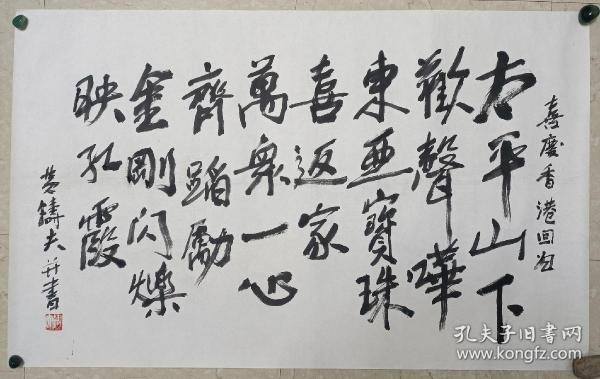 喜慶香港回歸
太平山下
歡聲嘩
東亞寶珠
喜返家
萬衆一心
齊蹈勵
金剛閃爍
映紅霞
鑄夫并書
孔夫子旧书网
www.kongfz.com